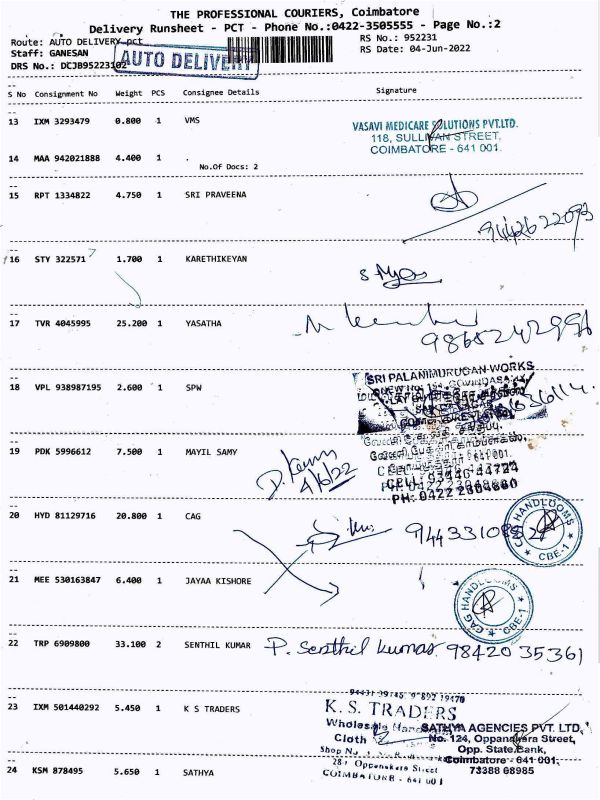 THE PROFESSIONAL COURIERS, Coimbatore
Delivery Runsheet - PCT - Phone No.:0422-3505555 - Page No.:2
Route: AUTO DELIVERY-pct
RS No.: 952231
Staff: GANESAN
RS Date: 04-Jun-2022
DRS No.: DCJB95223102
AUTO DELIVERY
S No Consignment No Weight PCS Consignee Details Signature
13 IXM 3293479 0.800 1 VMS
VASAVI MEDICARE SOLUTIONS PVT.LTD.
118, SULLIVAN STREET,
COIMBATORE - 641 001.
14 MAA 942021888 4.400 1 .
No.Of Docs: 2
15 RPT 1334822 4.750 1 SRI PRAVEENA
9442622093
16 STY 322571 1.700 1 KARETHIKEYAN
17 TVR 4045995 25.200 1 YASATHA
SRI PALANIMURUGAN WORKS
18 VPL 938987195 2.600 1 SPW
19 PDK 5996612 7.500 1 MAYIL SAMY
4/6/22
PH: 0422 2304860
20 HYD 81129716 20.800 1 CAG
CAG HANDLOOMS
CBE-1
21 MEE 530163847 6.400 1 JAYAA KISHORE
CAG HANDLOOMS
CBE-1
22 TRP 6909800 33.100 2 SENTHIL KUMAR
P. Senthil kumar 98420 35361
23 IXM 501440292 5.450 1 K S TRADERS
K. S. TRADERS
Wholesale
Cloth
Shop No
281 Oppanakara Street
COIMBATORE - 641 001
SATHYA AGENCIES PVT. LTD.
No. 124, Oppanakara Street,
Opp. State Bank,
Coimbatore - 641 001.
73388 68985
24 KSM 878495 5.650 1 SATHYA